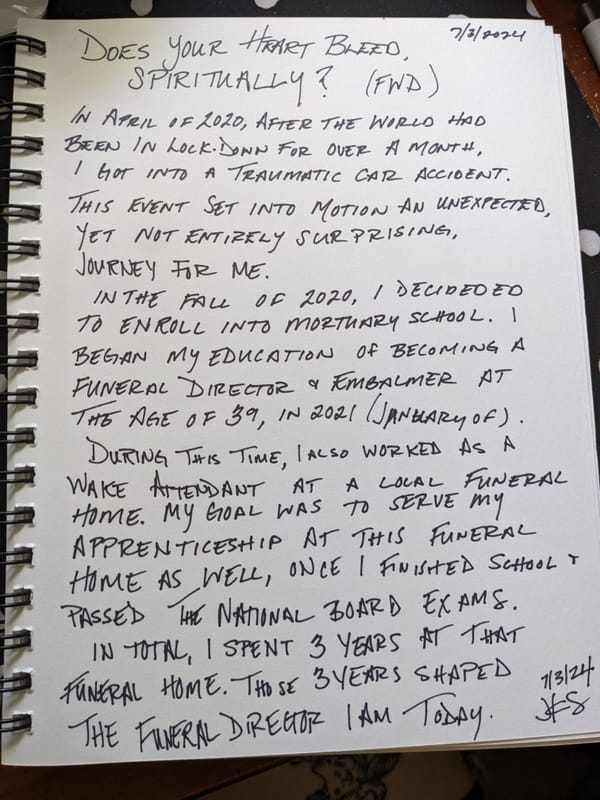 7/3/2024
DOES YOUR HEART BLEED,
SPIRITUALLY? (FWD)
IN APRIL OF 2020, AFTER THE WORLD HAD
BEEN IN LOCK-DOWN FOR OVER A MONTH,
I GOT INTO A TRAUMATIC CAR ACCIDENT.
THIS EVENT SET INTO MOTION AN UNEXPECTED,
YET NOT ENTIRELY SURPRISING,
JOURNEY FOR ME.
IN THE FALL OF 2020, I DECIDEDED
TO ENROLL INTO MORTUARY SCHOOL. I
BEGAN MY EDUCATION OF BECOMING A
FUNERAL DIRECTOR & EMBALMER AT
THE AGE OF 39, IN 2021 (JANUARY OF).
DURING THIS TIME, I ALSO WORKED AS A
WAKE ATTENDANT AT A LOCAL FUNERAL
HOME. MY GOAL WAS TO SERVE MY
APPRENTICESHIP AT THIS FUNERAL
HOME AS WELL, ONCE I FINISHED SCHOOL &
PASSED THE NATIONAL BOARD EXAMS.
IN TOTAL, I SPENT 3 YEARS AT THAT
FUNERAL HOME. THOSE 3 YEARS SHAPED
THE FUNERAL DIRECTOR I AM TODAY.
7/3/24